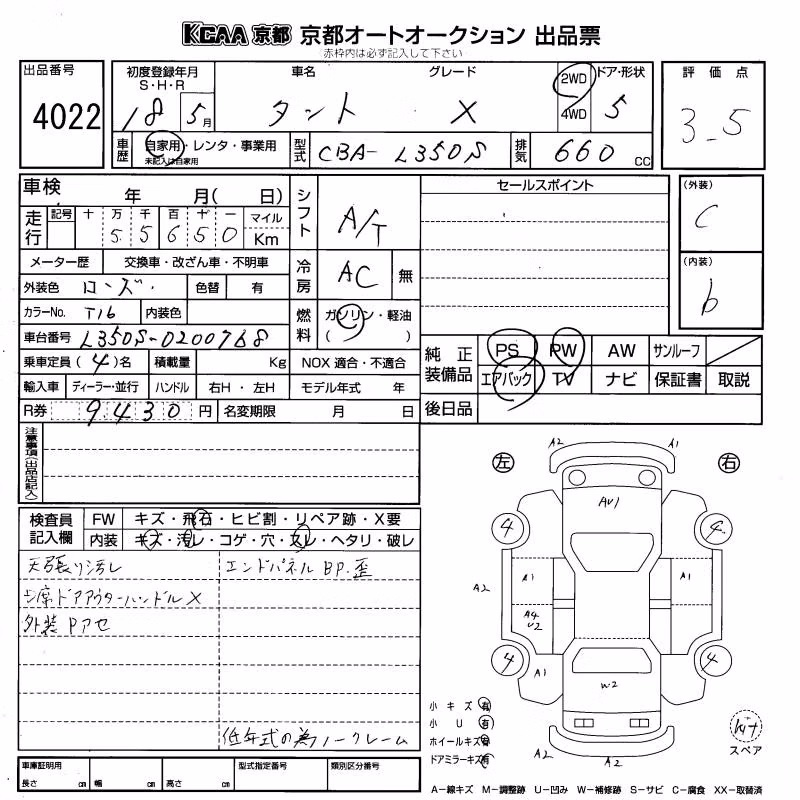 KCAA 京都 京都オートオークション 出品票
赤枠内は必ず記入して下さい
出品番号 4022
初度登録年月 S・H・R 18 5月
車名 タント
グレード X
2WD 4WD
ドア・形状 5
評価点 3.5
車歴 自家用・レンタ・事業用
未記入は自家用
型式 CBA- L350S
排気 660 CC
車検 年 月( 日)
シフト A/T
セールスポイント
(外装) C
走行 記号 十 万 千 百 十 一 マイル
5 5 6 5 0 Km
メーター歴 交換車・改ざん車・不明車
冷房 AC 無
(内装) b
外装色 ローズ. 色替 有
カラーNo. T16 内装色
燃料 ガソリン・軽油
( )
車台番号 L350S-0200768
乗車定員 (4)名 積載量 Kg NOX 適合・不適合
純正装備品 PS PW AW サンルーフ
エアバック TV ナビ 保証書 取説
輸入車 ディーラー・並行 ハンドル 右H・左H モデル年式 年
R券 9430円 名変期限 月 日
後日品
注意事項(出品店記入)
検査員記入欄 FW キズ・飛石・ヒビ割・リペア跡・X要
内装 キズ・汚レ・コゲ・穴・スレ・ヘタリ・破レ
天張り汚レ エンドパネルBP.歪
ドアアウターハンドルX
外装Pアセ
低年式の為ノークレーム
左 右
A2 A1
AU1
4 4
A1 A1
A2 A2
A4
U2
4 4
A1
W2
A2 A2
小キズ有
小U有
ホイールキズ有
ドアミラーキズ有
スペア
車庫証明用 型式指定番号 類別区分番号
長さ cm 幅 cm 高さ cm
A−線キズ M−調整跡 U−凹み W−補修跡 S−サビ C−腐食 XX−取替済